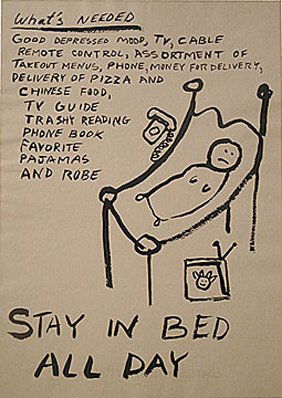 What's NEEDED
GOOD DEPRESSED MOOD, TV, CABLE
REMOTE CONTROL, ASSORTMENT OF
TAKEOUT MENUS, PHONE, MONEY FOR DELIVERY,
DELIVERY OF PIZZA AND
CHINESE FOOD,
TV GUIDE
TRASHY READING
PHONE BOOK
FAVORITE
PAJAMAS
AND ROBE
STAY IN BED
ALL DAY